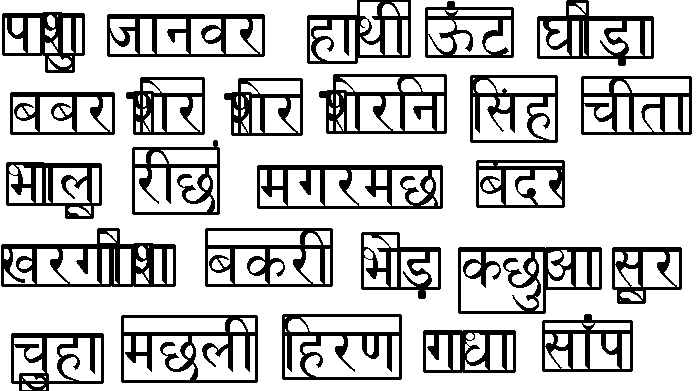 पशु जानवर हाथी ऊँट घोड़ा
बबर शेर शेर शेरनि सिंह चीता
भालू रीछ मगरमछ बंदर
खरगोश बकरी भेड़ कछुआ सूर
चूहा मछली हिरण गधा साँप